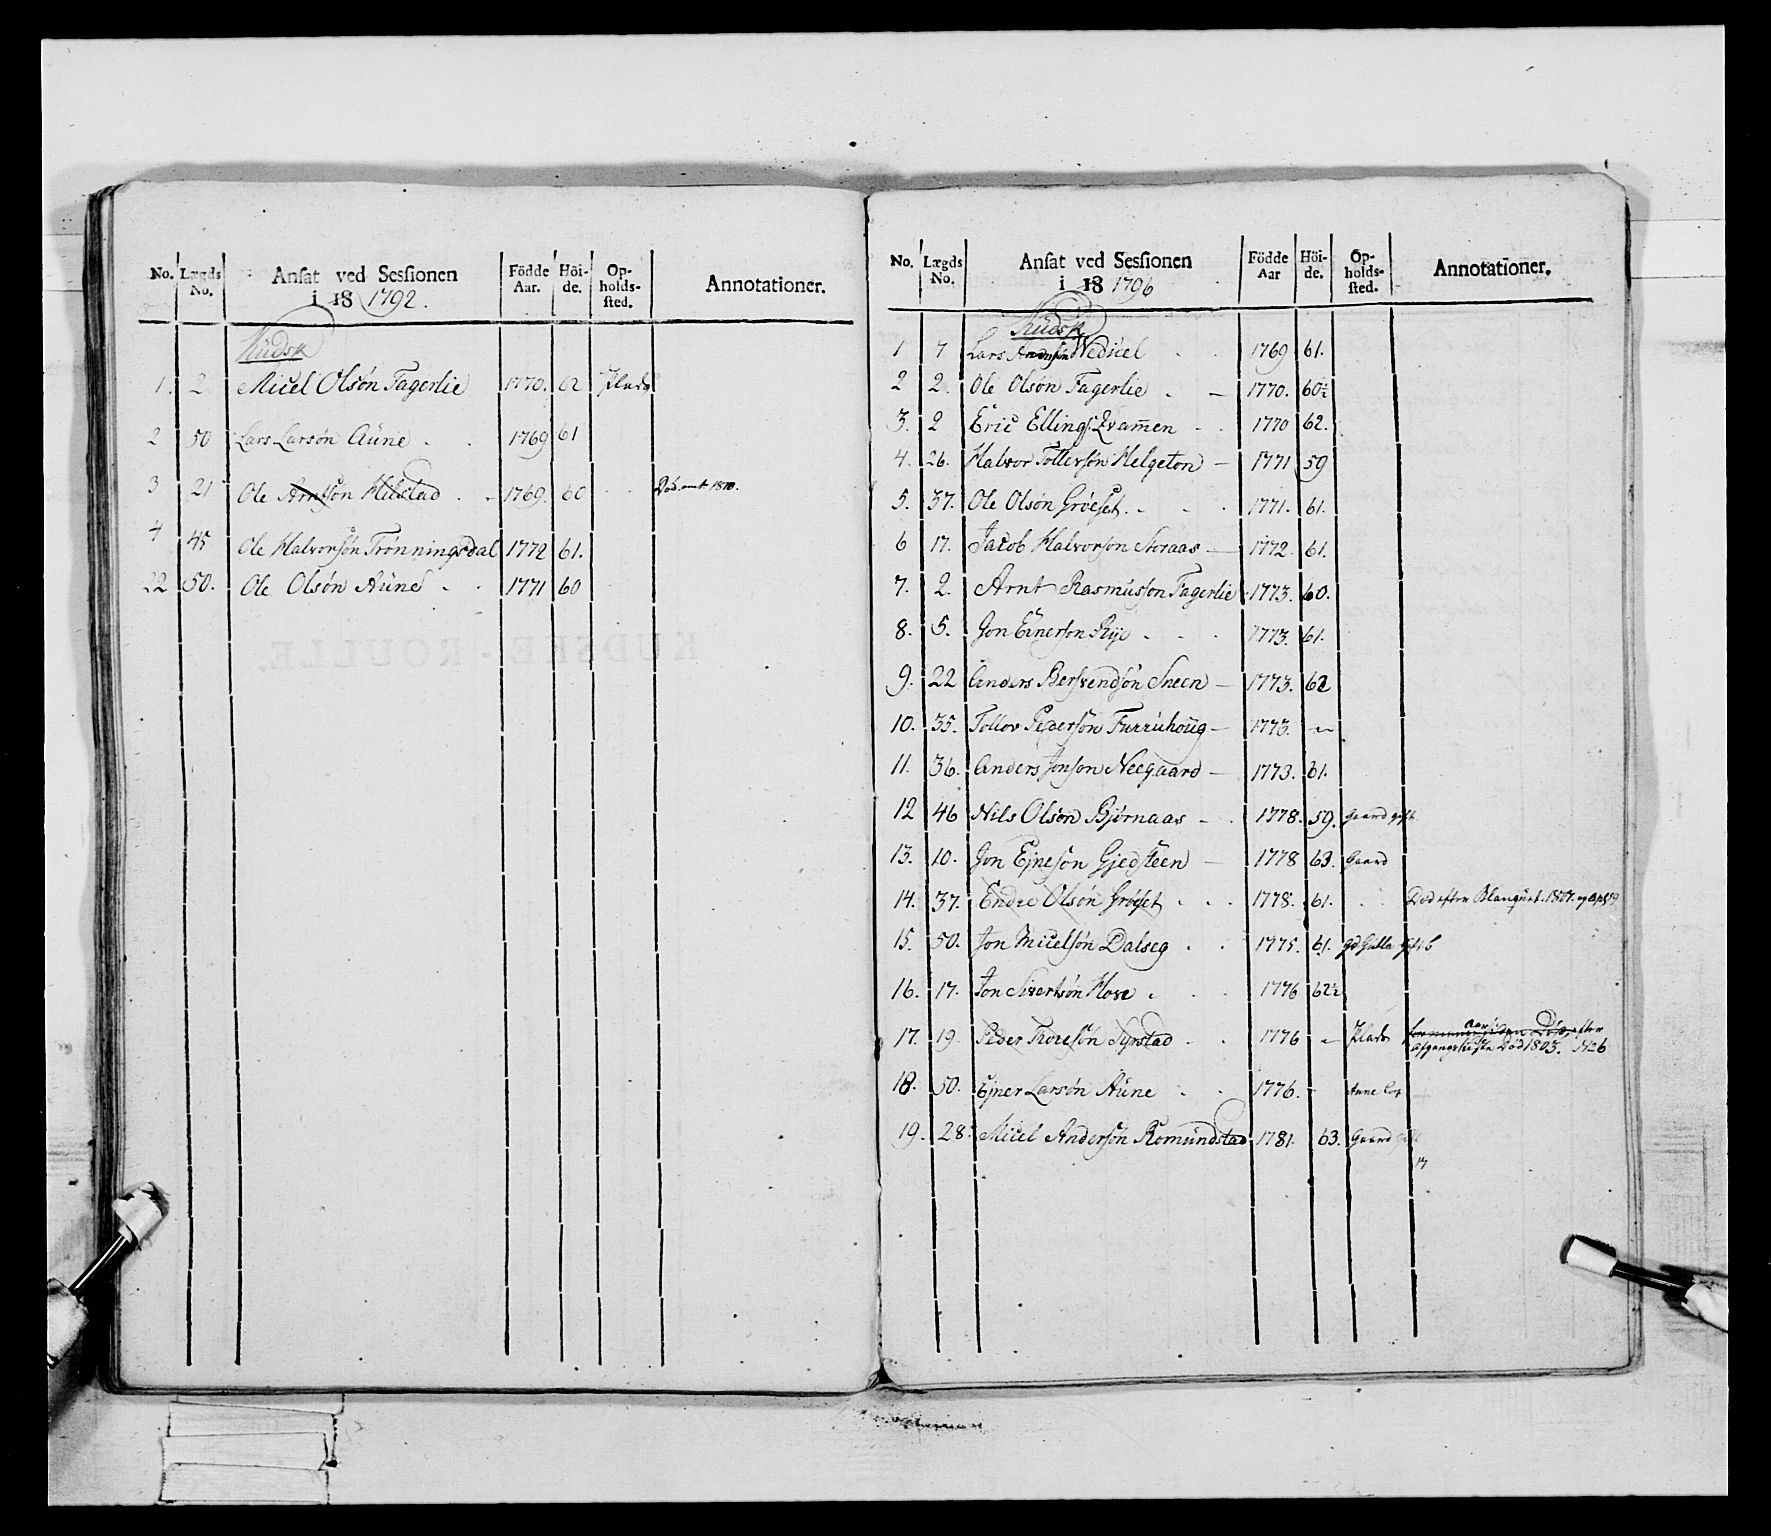 No. Lægds No. Ansat ved Sessionen i 18 1792. Födde Aar. Höi- de. Op- holds- sted. Annotationer.
Kudsk
1. 2 Micel Olsøn Fagerlie 1770. 62 Plads
2 50 Lars Larsøn Aüne . . 1769 61
3 21 Ole Arntsøn Hilstad . . 1769. 60 Död. 1810.
4 45 Ole Halvorsøn Trønningsdal 1772 61.
22 50. Ole Olsøn Aüne . . 1771 60
KUDSKE-ROULLE.
No. Lægds No. Ansat ved Sessionen i 18 1796 Födde Aar Höi- de. Op- holds- sted. Annotationer.
Küdsk
1 7 Lars Andersøn Wedicel . . 1769 61.
2 2. Ole Olsøn Fagerlie . – 1770. 60½
3. 2 Eric Ellings. Qvam̄en . . 1770 62.
4. 26. Halvor Tollevsøn Helgeton – 1771 59
5. 37. Ole Olsøn Grøeset . . . 1771. 61.
6 17. Jacob Halvorson Storaas – 1772. 61.
7. 2. Arnt Rasmusson Fagerlie 1773. 60.
8. 5. Jon Einerson Rye . . . 1773. 61.
9. 22 Anders Bersvendsøn Sneen – 1773. 62
10. 35. Tollov Pedersøn Furruhoüg – 1773. –
11. 36. Anders Jonson Neegaard – 1773. 61.
12 46 Nils Olsøn Bjørnaas – . 1778. 59. Gaard gift.
13. 10. Jon Ejnesøn Gjedsteen – 1778 63. Gaard
14. 37. Endre Olsøn Grøeset . . . 1778. 61. . . Død efter Blanquet. 1807.
15. 50. Jon Micelsøn Dalseg . . 1775. 61.
16. 17. Jon Sivertsøn Hove . . . 1776 62½
17. 19. Peder Thoresøn Syrstad . . 1776 – Plads efter
Afgangsliste Død 1803. No 6
18. 50. Ejner Larsøn Aüne . . 1776. – Aune
19. 28. Micel Andersøn Romündstad 1781. 63. Gaard